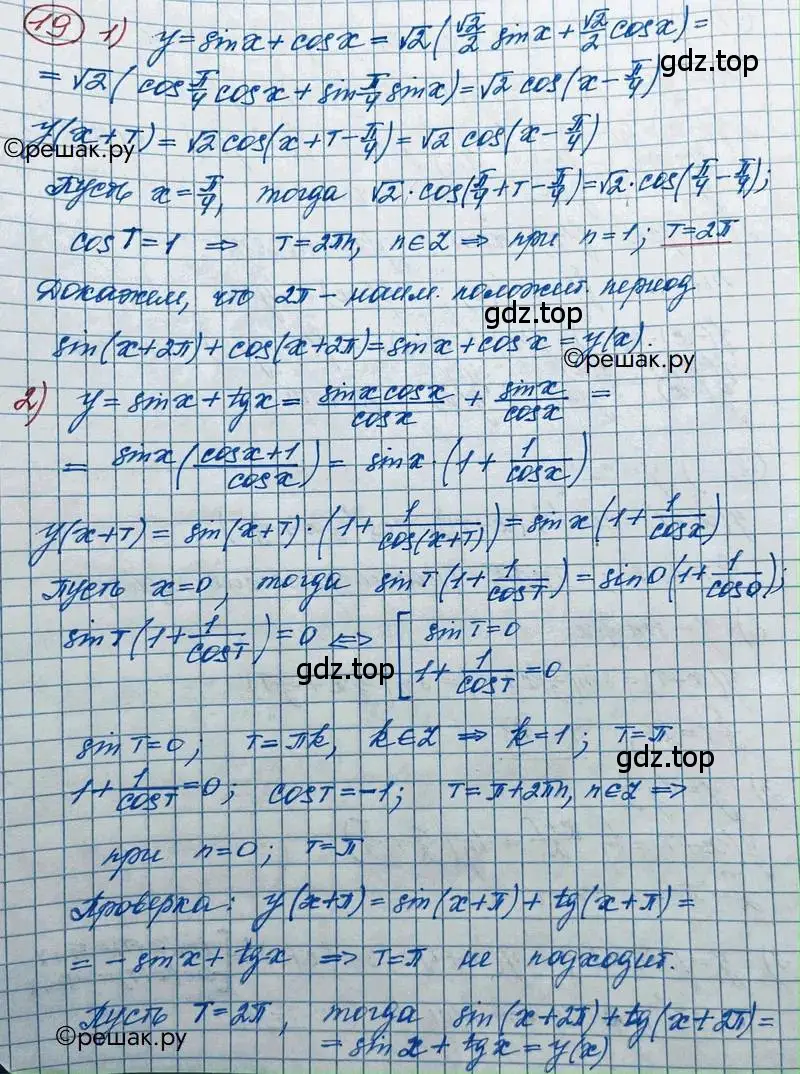 19 1) y = sin x + cos x = √2 (√2/2 sin x + √2/2 cos x) =
gdz.top
= √2 (cos π/4 cos x + sin π/4 sin x) = √2 cos(x − π/4)
y(x+T) = √2 cos(x + T − π/4) = √2 cos(x − π/4)
©решак.ру
Пусть x = π/4, тогда √2 · cos(π/4 + T − π/4) = √2 · cos(π/4 − π/4);
cos T = 1 ⇒ T = 2πn, n∈Z ⇒ при n = 1; T = 2π
Докажем, что 2π – наим. положит. период
gdz.top
sin(x+2π) + cos(x+2π) = sin x + cos x = y(x).
©решак.ру
2) y = sin x + tg x = sin x cos x / cos x + sin x / cos x =
= sin x ((cos x + 1) / cos x) = sin x · (1 + 1/cos x)
y(x+T) = sin(x+T) · (1 + 1/cos(x+T)) = sin x (1 + 1/cos x)
Пусть x = 0, тогда sin T (1 + 1/cos T) = sin 0 (1 + 1/cos 0);
sin T (1 + 1/cos T) = 0 ⇔ [ sin T = 0
1 + 1/cos T = 0
gdz.top
sin T = 0; T = πk, k∈Z ⇒ k = 1; T = π
gdz.top
1 + 1/cos T = 0; cos T = −1; T = π + 2πn, n∈Z ⇒
при n = 0; T = π
Проверка: y(x+π) = sin(x+π) + tg(x+π) =
= − sin x + tg x ⇒ T = π не подходит.
Пусть T = 2π, тогда sin(x+2π) + tg(x+2π) =
©решак.ру
= sin x + tg x = y(x)